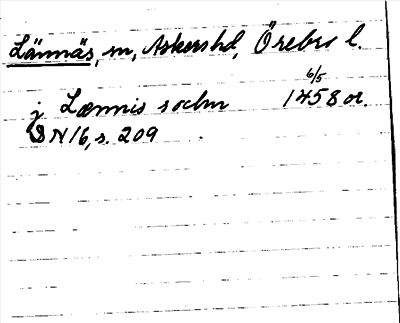 Lännäs, sn, Askers hd, Örebro l.
j Lænnis sochn 6/5 1458 or.
DN 16, s. 209